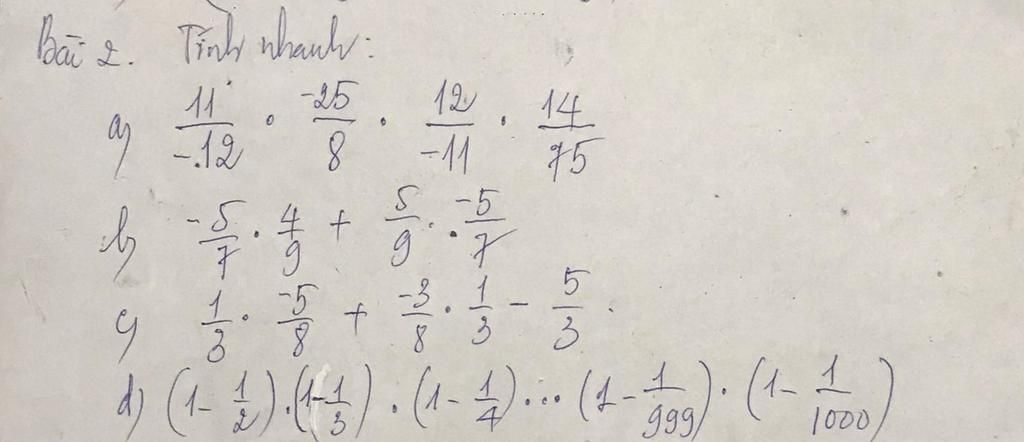 Bài 2. Tính nhanh:
a) 11/-12 . -25/8 . 12/-11 . 14/75
b) -5/7 . 4/9 + 5/9 . -5/7
c) 1/3 . -5/8 + -3/8 . 1/3 - 5/3.
d) (1 - 1/2) . (1 - 1/3) . (1 - 1/4) ... (1 - 1/999) . (1 - 1/1000)